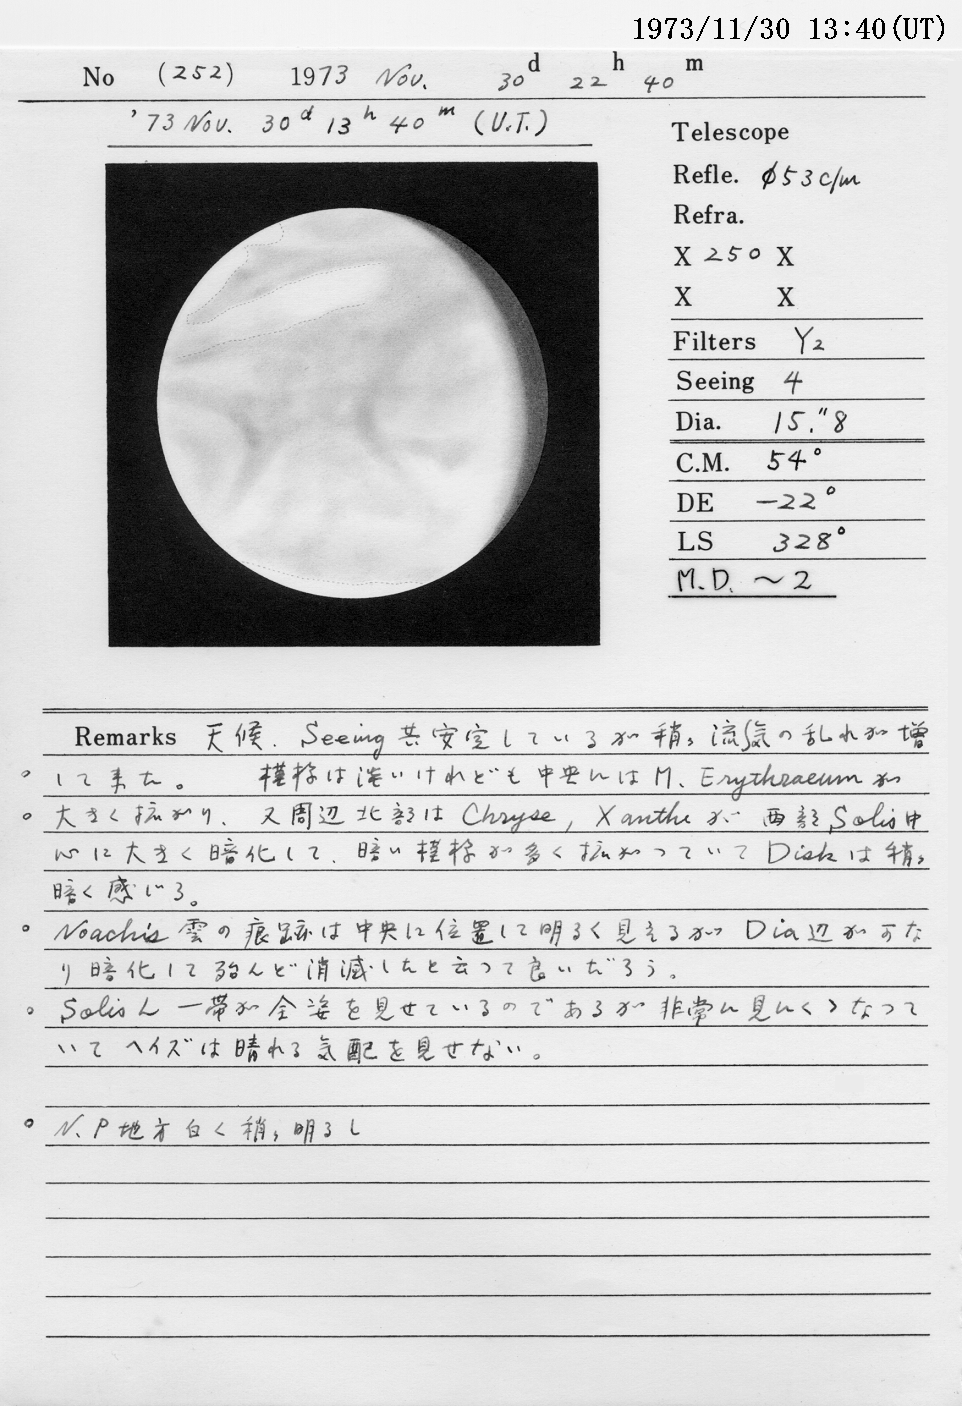 1973/11/30 13:40(UT)
No (252) 1973 Nov. 30d 22h 40m
'73 Nov. 30d 13h 40m (U.T.)
Telescope
Refle. φ53c/m
Refra.
X 250 X
X X
Filters Y2
Seeing 4
Dia. 15."8
C.M. 54°
DE -22°
LS 328°
M.D. ~2
Remarks 天候. Seeing共安定しているが稍々流気の乱れが増
して来た。 模様は淡いけれども中央にはM. Erythraeumが
大きく拡がり、又周辺北部はChryse, Xantheが西部Solis中
心に大きく暗化して、暗い模様が多く拡がっていてDiskは稍々
暗く感じる。
Noachis雲の痕跡は中央に位置して明るく見えるがDia辺がかな
り暗化して殆んど消滅したと云って良いだろう。
SolisL一帯が全姿を見せているのであるが非常に見にくくなって
いてヘイズは晴れる気配を見せない。
N.P地方白く稍々明るし